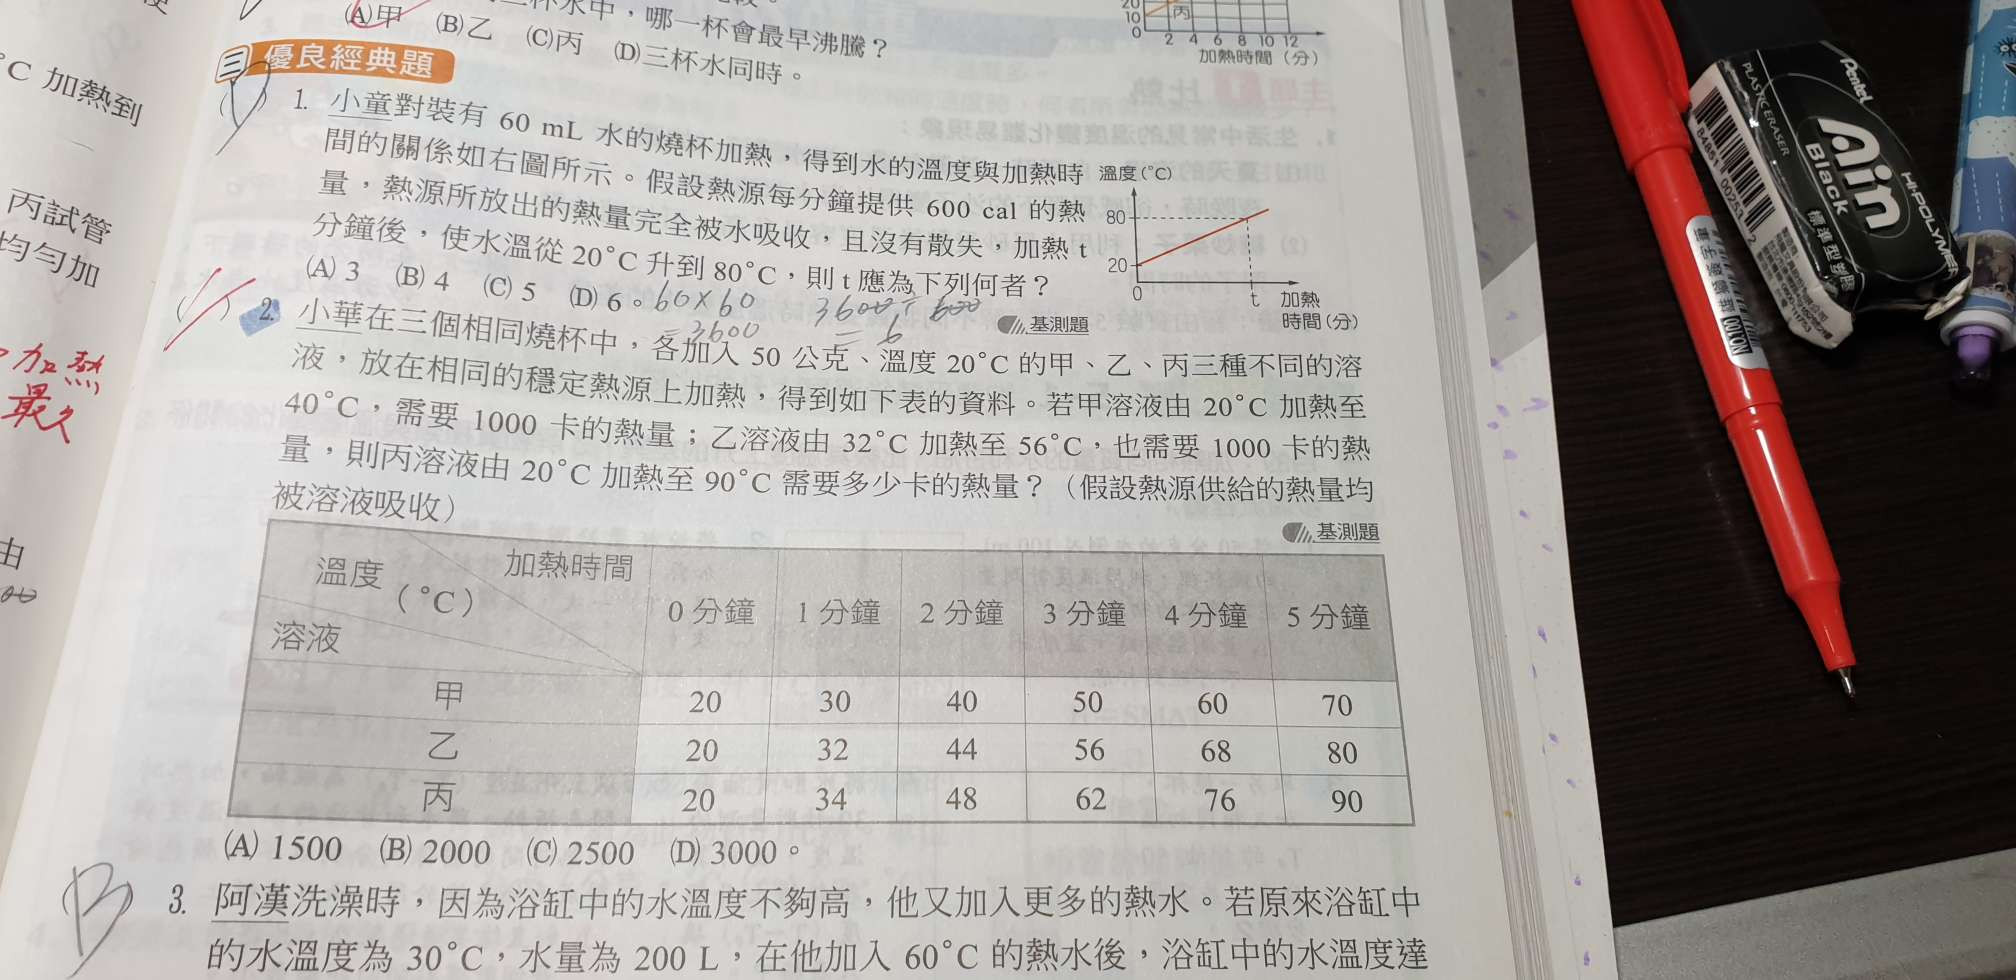 杯水中,哪一杯會最早沸騰?
(A)甲 (B)乙 (C)丙 (D)三杯水同時。
20
10
0
丙
2 4 6 8 10 12
加熱時間(分)
三 優良經典題
1. 小童對裝有 60 mL 水的燒杯加熱,得到水的溫度與加熱時
間的關係如右圖所示。假設熱源每分鐘提供 600 cal 的熱
量,熱源所放出的熱量完全被水吸收,且沒有散失,加熱 t
分鐘後,使水溫從 20°C 升到 80°C,則 t 應為下列何者?
(A) 3 (B) 4 (C) 5 (D) 6。
60×60
=3600
3600÷600
=6
基測題
溫度(°C)
80
20
0
t
加熱
時間(分)
2. 小華在三個相同燒杯中,各加入 50 公克、溫度 20°C 的甲、乙、丙三種不同的溶
液,放在相同的穩定熱源上加熱,得到如下表的資料。若甲溶液由 20°C 加熱至
40°C,需要 1000 卡的熱量;乙溶液由 32°C 加熱至 56°C,也需要 1000 卡的熱
量,則丙溶液由 20°C 加熱至 90°C 需要多少卡的熱量?(假設熱源供給的熱量均
被溶液吸收)
基測題
溫度(°C) 加熱時間
溶液
0 分鐘 1 分鐘 2 分鐘 3 分鐘 4 分鐘 5 分鐘
甲 20 30 40 50 60 70
乙 20 32 44 56 68 80
丙 20 34 48 62 76 90
(A) 1500 (B) 2000 (C) 2500 (D) 3000。
B
3. 阿漢洗澡時,因為浴缸中的水溫度不夠高,他又加入更多的熱水。若原來浴缸中
的水溫度為 30°C,水量為 200 L,在他加入 60°C 的熱水後,浴缸中的水溫度達
°C 加熱到
丙試管
均勻加
加熱
最久
由
Pentel
Ain
Black
HI-POLYMER
PLASTIC ERASER
標準型塑膠